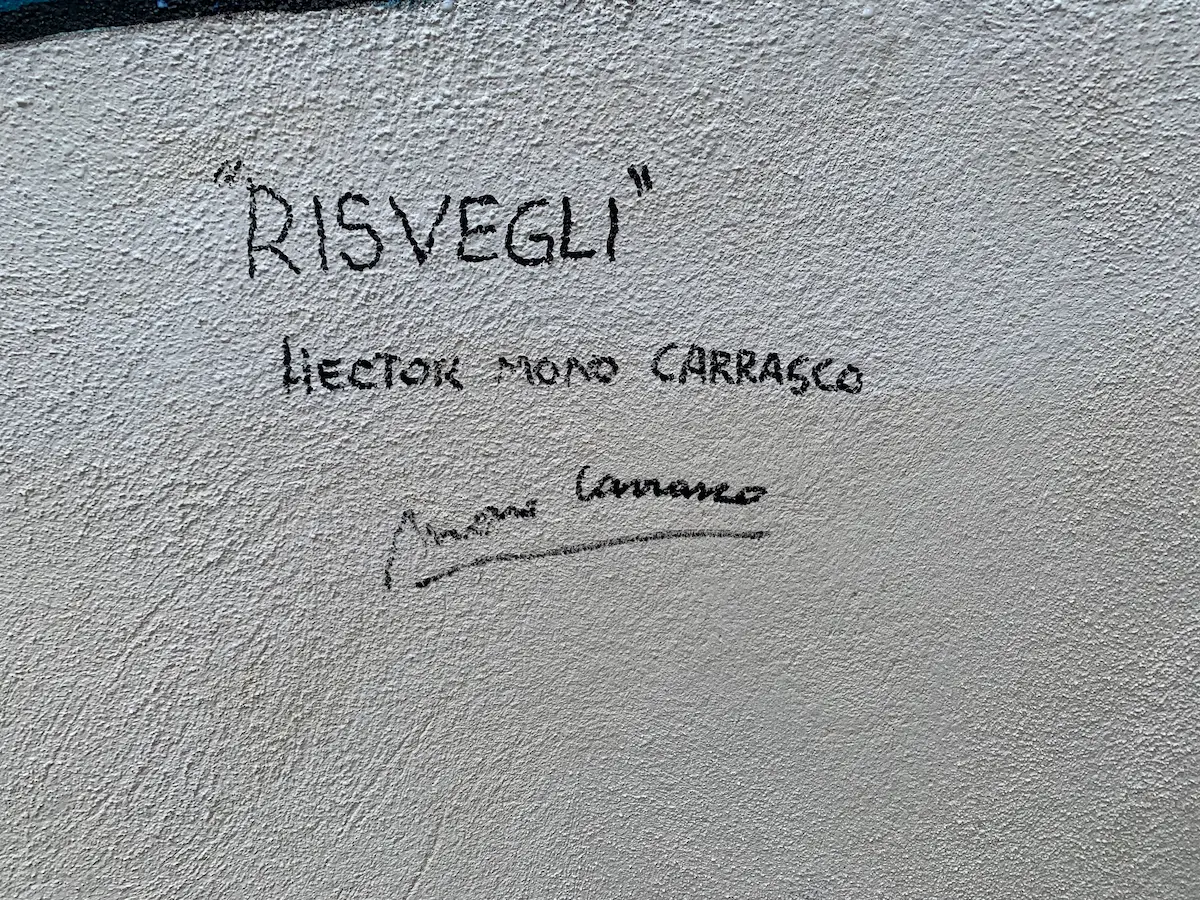 "RISVEGLI"
HECTOR MONO CARRASCO
Carrasco